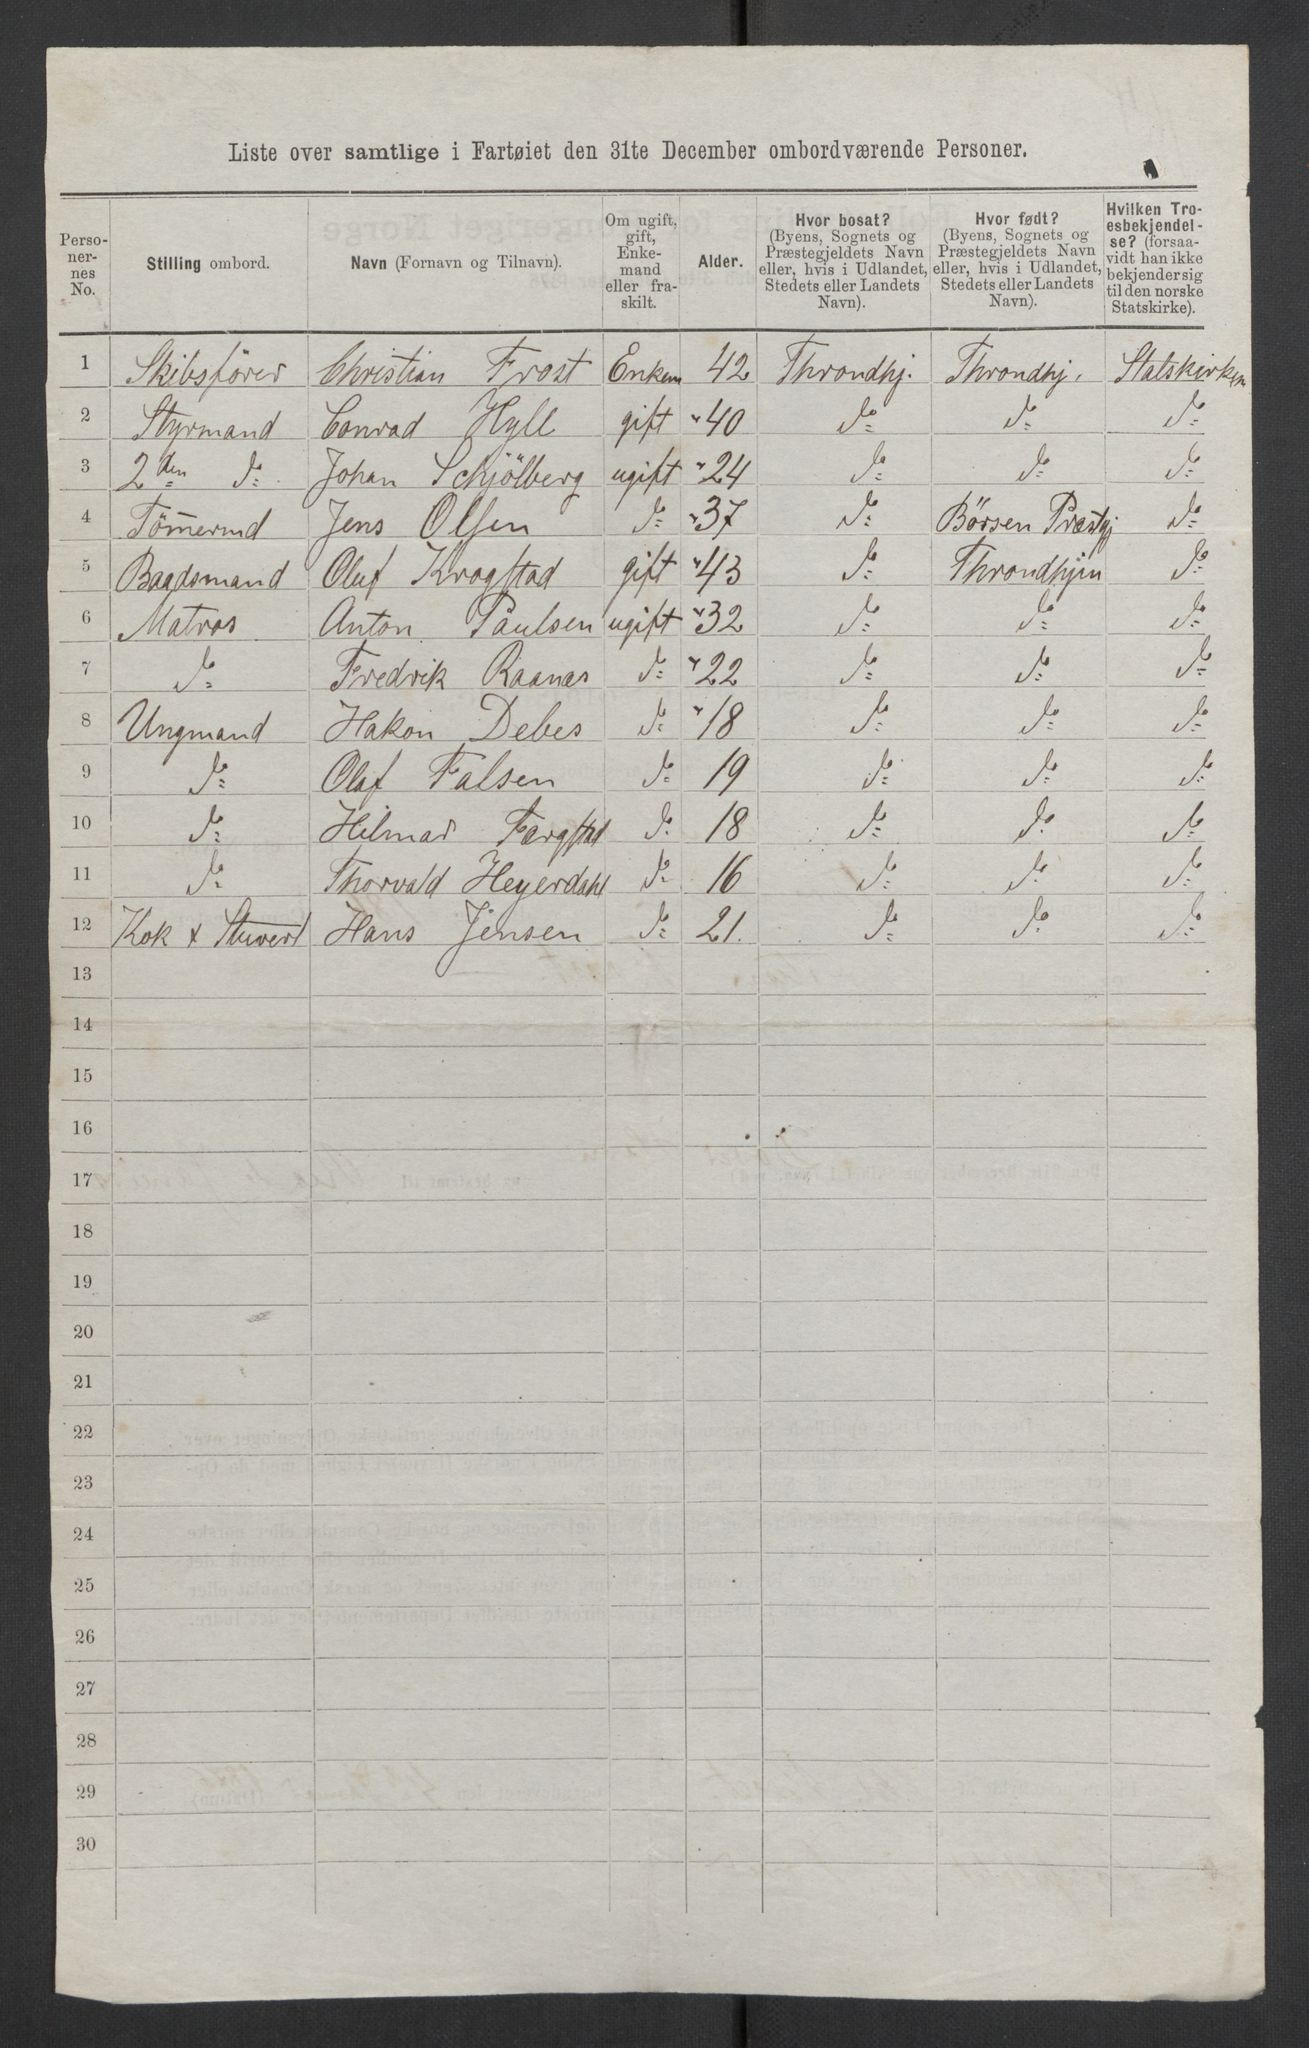 Liste over samtlige i Fartøiet den 31te December ombordværende Personer.
Perso-
ner-
nes
No.
Stilling ombord.
Navn (Fornavn og Tilnavn).
Om ugift,
gift,
Enke-
mand
eller fra-
skilt.
Alder.
Hvor bosat?
(Byens, Sognets og
Præstegjeldets Navn
eller, hvis i Udlandet,
Stedets eller Landets
Navn).
Hvor født?
(Byens, Sognets og
Præstegjeldets Navn
eller, hvis i Udlandet,
Stedets eller Landets
Navn).
Hvilken Tro-
esbekjendel-
se? (forsaa-
vidt han ikke
bekjender sig
til den norske
Statskirke).
1 Skibsfører Christian Frost Enkem 42 Throndhj. Throndhj. Statskirken
2 Styrmand Conrad Hyll gift " 40 do do do
3 2den do Johan Schjölberg ugift " 24 do do do
4 Tömermd Jens Olsen do " 37 do Börsen Præstgj do
5 Baadsmand Oluf Krogstad gift " 43 do Throndhjem do
6 Matros Anton Paulsen ugift " 32 do do do
7 do Fredrik Raanas do " 22 do do do
8 Ungmand Hakon Debes do " 18 do do do
9 do Olaf Falsen do 19 do do do
10 do Hilmar Færgstad do 18 do do do
11 do Thorvald Heyerdahl do 16 do do do
12 Kok & Stuvert Hans Jensen do 21. do do do
13
14
15
16
17
18
19
20
21
22
23
24
25
26
27
28
29
30